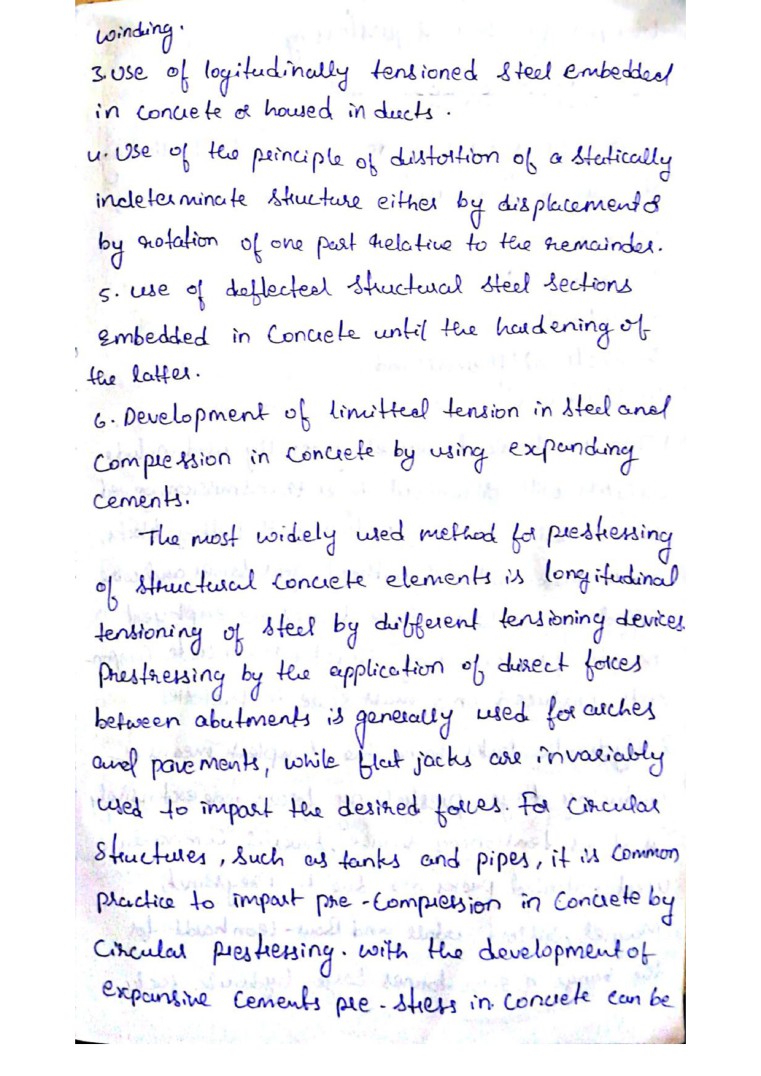 winding.
3. Use of logitudinally tensioned steel embedded
in concrete or housed in ducts.
4. Use of the principle of distortion of a statically
indeterminate structure either by displacement or
by rotation of one part relative to the remainder.
5. use of deflected structural steel sections
Embedded in concrete until the hardening of
the latter.
6. Development of limitted tension in steel and
compression in concrete by using expanding
cements.
The most widely used method for prestressing
of structural concrete elements is longitudinal
tensioning of steel by different tensioning devices.
Prestressing by the application of direct forces
between abutments is generally used for arches
and pavements, while flat jacks are invariably
used to impart the desired forces. For circular
structures, such as tanks and pipes, it is common
practice to impart pre-compression in concrete by
circular prestressing. with the development of
expansive cements pre-stress in concrete can be